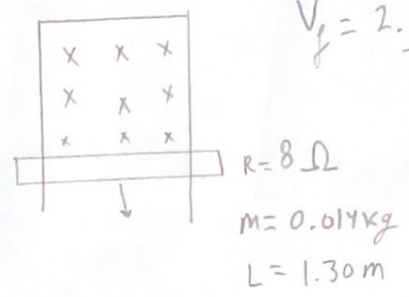 V_f = 2.
x x x
x x x
x x x
R = 8 Ω
m = 0.014 kg
L = 1.30 m